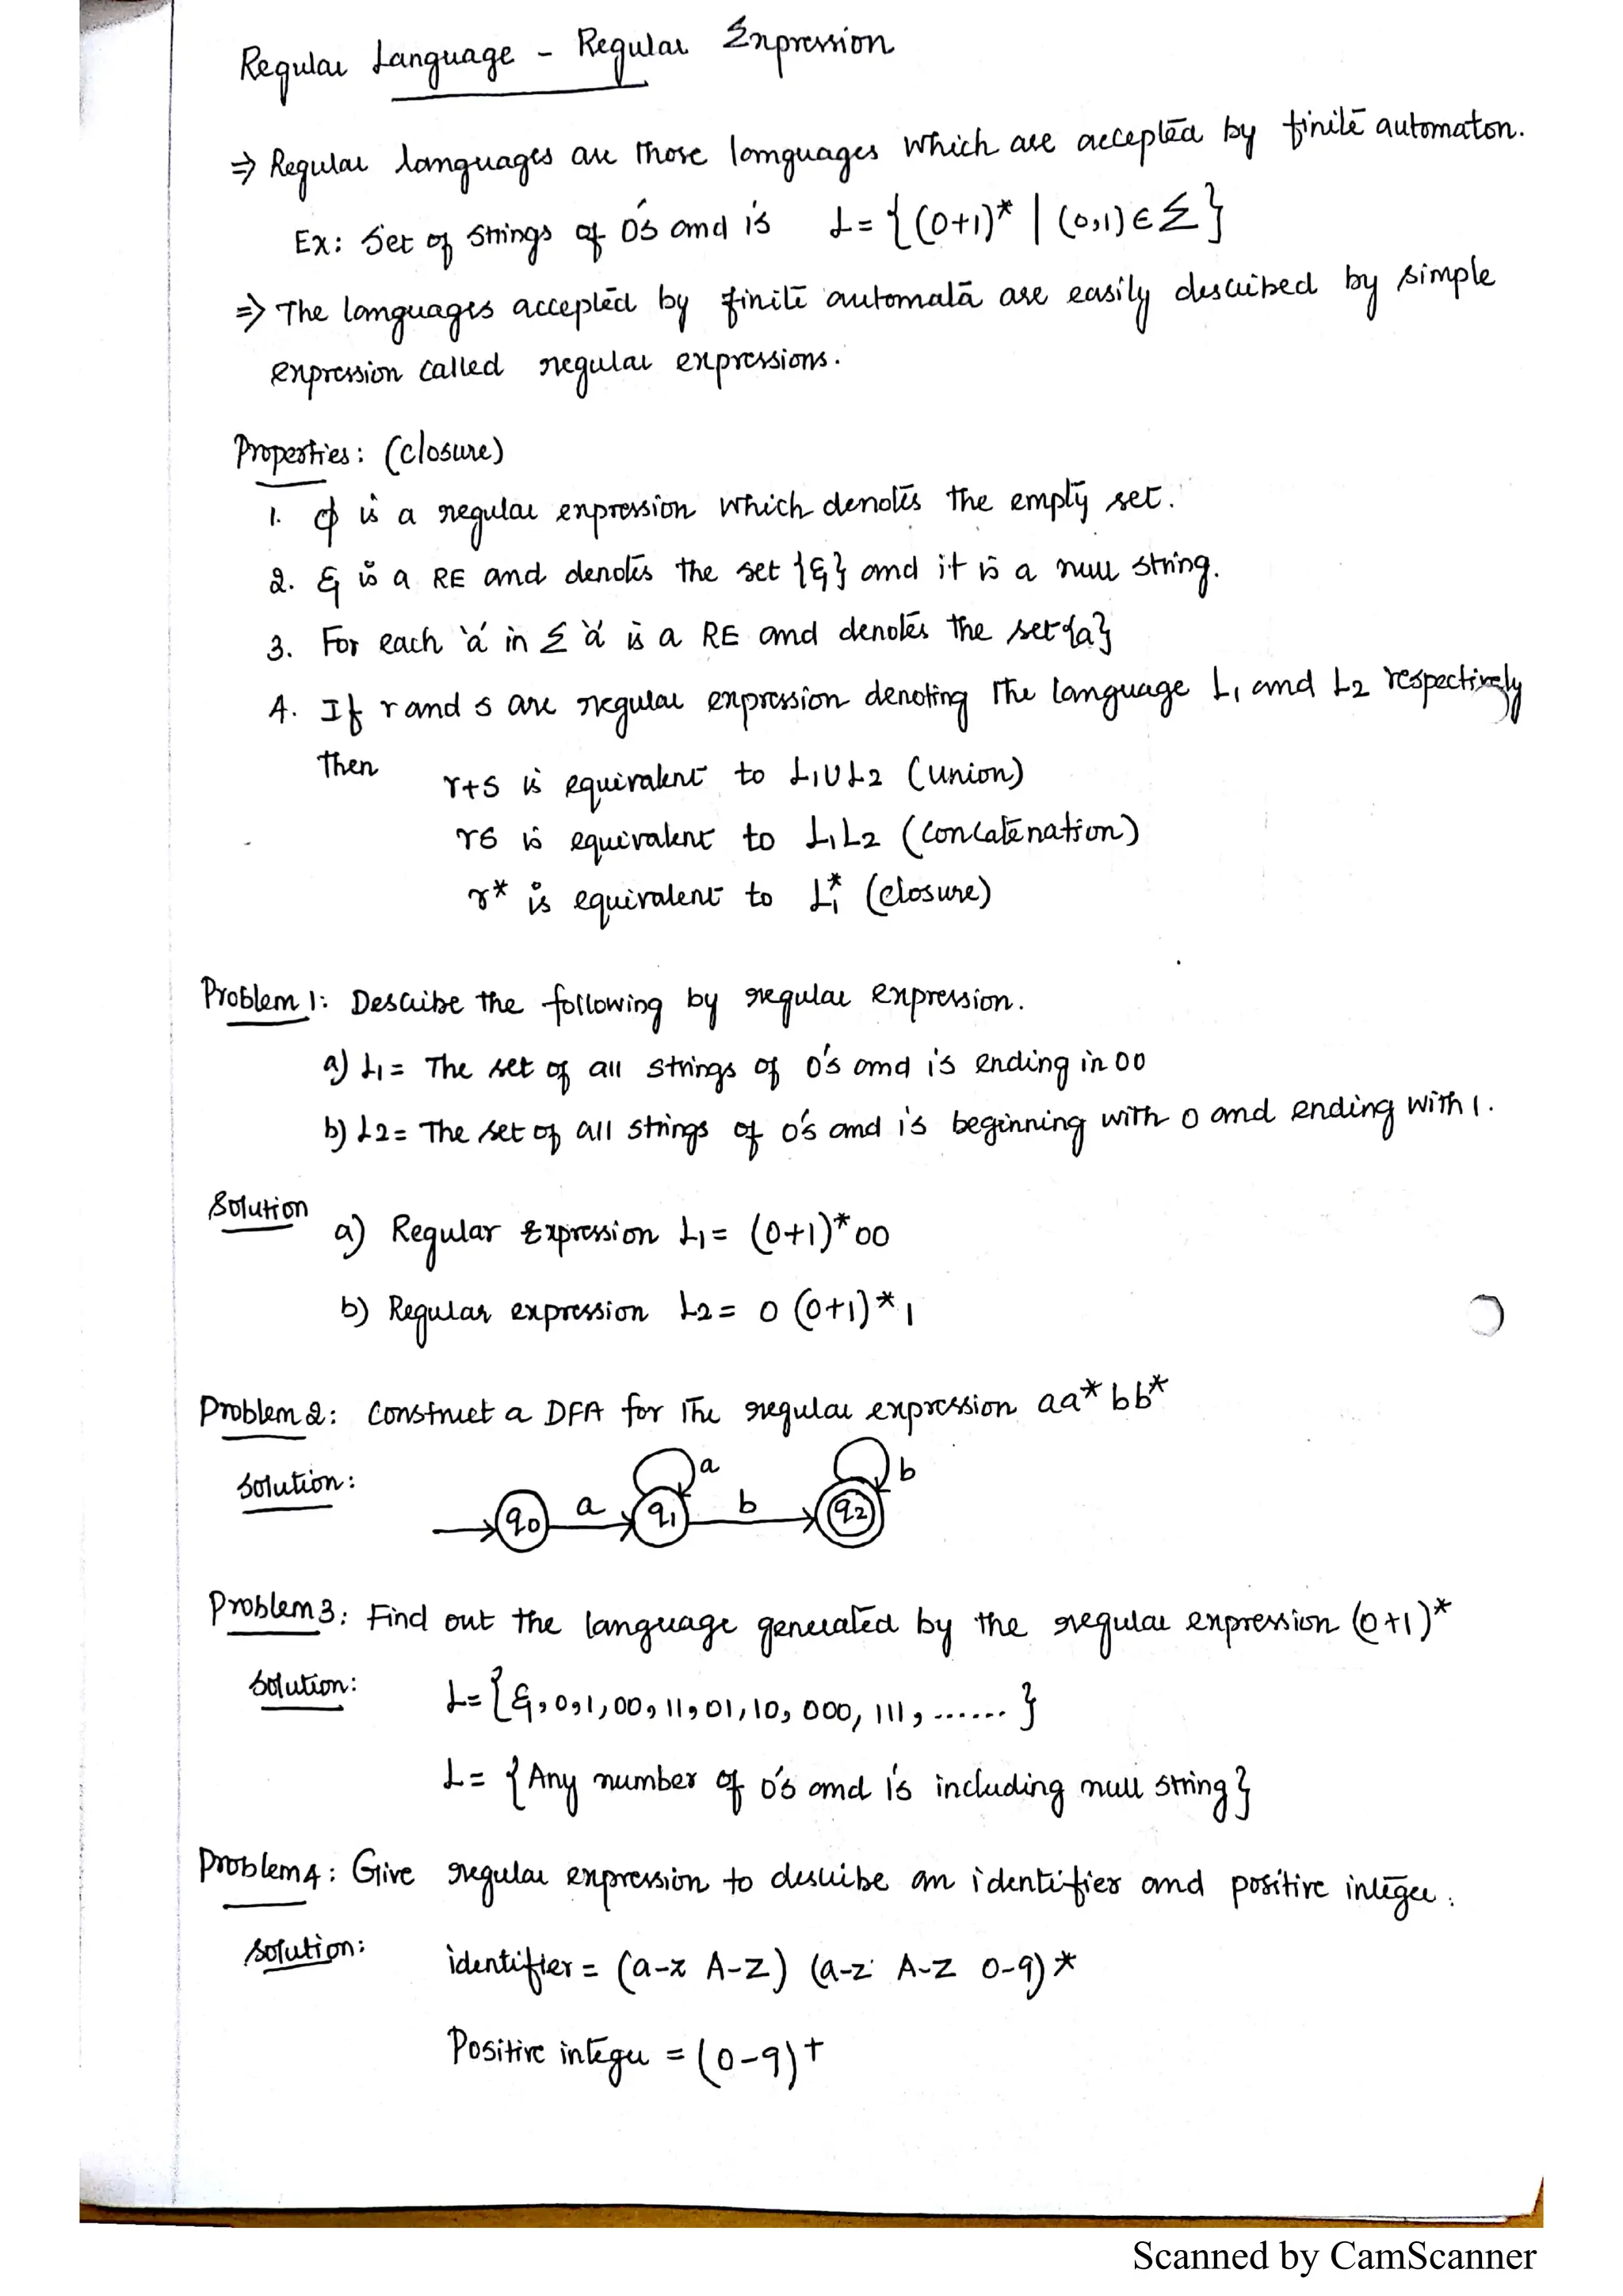 Regular Language - Regular Expression
⇒ Regular languages are those languages which are accepted by finite automaton.
Ex: Set of strings of 0's and 1's L = {(0+1)* | (0,1) ∈ Σ}
⇒ The languages accepted by finite automata are easily described by simple
expression called regular expressions.
Properties: (closure)
1. ϕ is a regular expression which denotes the empty set.
2. ε is a RE and denotes the set {ε} and it is a null string.
3. For each 'a' in Σ 'a' is a RE and denotes the set {a}
4. If r and s are regular expression denoting the language L1 and L2 respectively
then r+s is equivalent to L1UL2 (union)
rs is equivalent to L1L2 (concatenation)
r* is equivalent to L1* (closure)
Problem 1: Describe the following by regular expression.
a) L1 = The set of all strings of 0's and 1's ending in 00
b) L2 = The set of all strings of 0's and 1's beginning with 0 and ending with 1.
Solution
a) Regular Expression L1 = (0+1)*00
b) Regular expression L2 = 0 (0+1)*1
Problem 2: Construct a DFA for the regular expression aa*bb*
Solution:
a b
q0 a q1 b q2
Problem 3: Find out the language generated by the regular expression (0+1)*
Solution: L = {ε, 0, 1, 00, 11, 01, 10, 000, 111, ......}
L = {Any number of 0's and 1's including null string}
Problem 4: Give regular expression to describe an identifier and positive integer.
Solution: identifier = (a-z A-Z) (a-z A-Z 0-9)*
Positive integer = (0-9)+
Scanned by CamScanner